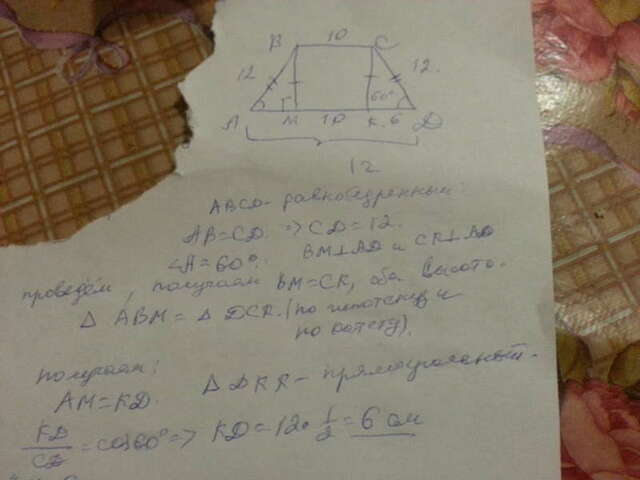 B 10 C
12 12.
60°
A M 10 K 6 D
12
ABCD - равнобедренный:
AB=CD. => CD=12.
∠A=60°. BM⊥AD и CK⊥AD
проведём, получаем BM=CK, оба высоты.
△ ABM = △ DCK. (по гипотенузе и
по катету).
получаем:
AM=KD. △ DKK - прямоугольный.
KD/CD = cos60° => KD = 12 · 1/2 = 6 см